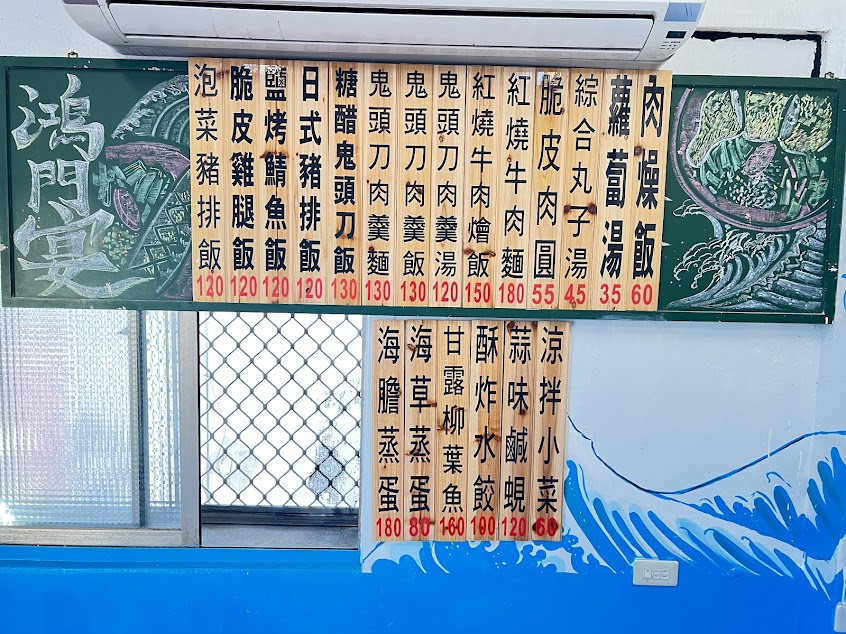 鴻門宴
肉燥飯 60
蘿蔔湯 35
綜合丸子湯 45
脆皮肉圓 55
紅燒牛肉麵 180
紅燒牛肉燴飯 150
鬼頭刀肉羹湯 120
鬼頭刀肉羹飯 130
鬼頭刀肉羹麵 130
糖醋鬼頭刀飯 130
日式豬排飯 120
鹽烤鯖魚飯 120
脆皮雞腿飯 120
泡菜豬排飯 120
涼拌小菜 60
蒜味鹹蜆 120
酥炸水餃 100
甘露柳葉魚 160
海草蒸蛋 80
海膽蒸蛋 180